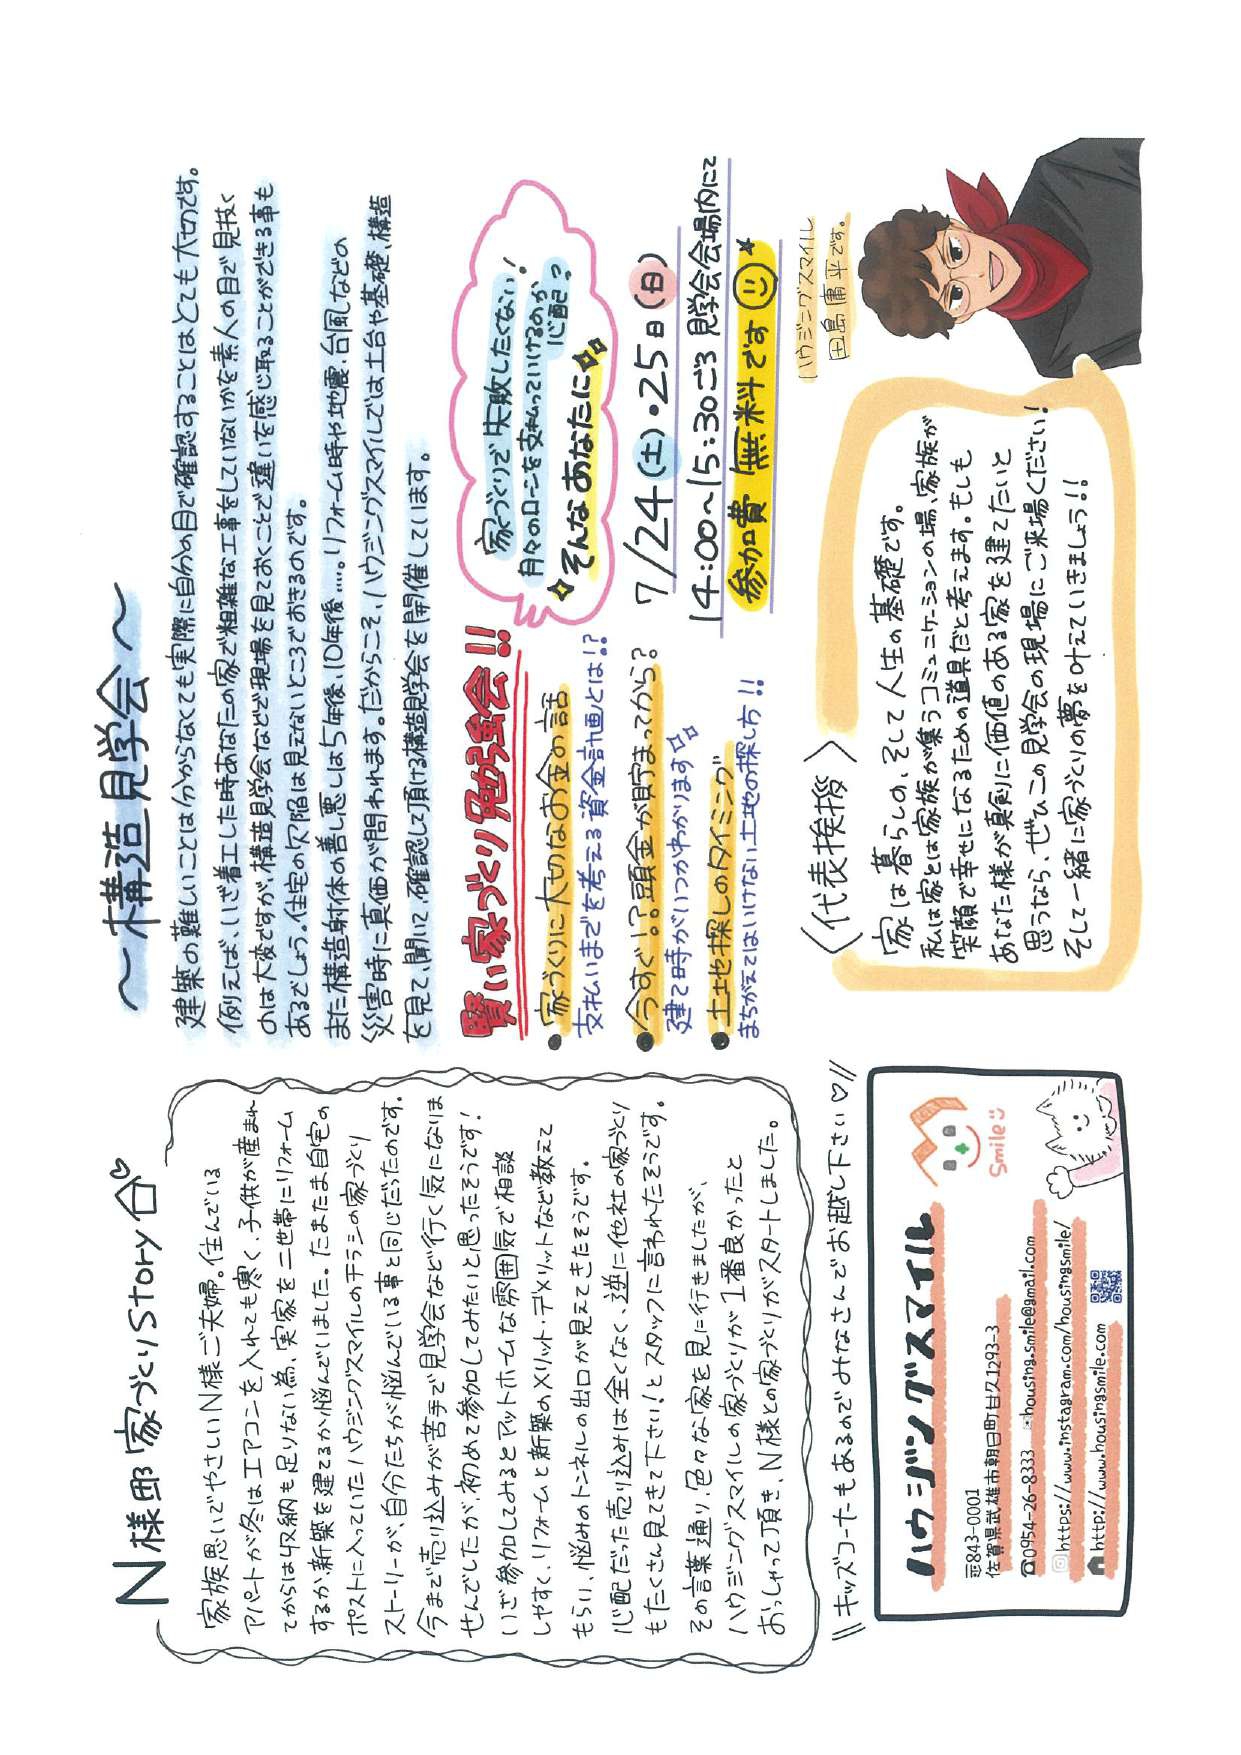 N様邸 家づくりStory
家族思いでやさしいN様ご夫婦。住んでいる
アパートが冬はエアコンを入れても寒く、子供が産まれ
てからは収納も足りない為、実家を二世帯にリフォーム
するか新築を建てるか悩んでいました。たまたま自宅の
ポストに入っていたハウジングスマイルのチラシの家づくり
ストーリーが、自分たちが悩んでいる事と同じだったのです。
今まで売り込みが苦手で見学会など行く気になりま
せんでしたが、初めて参加してみたいと思ったそうです!
いざ参加してみるとアットホームな雰囲気で相談
しやすく、リフォームと新築のメリット・デメリットなど教えて
もらい、悩みのトンネルの出口が見えてきたそうです。
心配だった売り込みは全くなく、逆に他社の家づくり
もたくさん見てきて下さい!とスタッフに言われたそうです。
その言葉通り、色々な家を見に行きましたが、
ハウジングスマイルの家づくりが1番良かったと
おっしゃって頂き、N様との家づくりがスタートしました。
\\キッズコーナーもあるのでみなさんでお越し下さい♡//
ハウジングスマイル
smile
〒843-0001
佐賀県武雄市朝日町甘久1293-3
☎0954-26-8333 ✉housing.smile@gmail.com
https://www.instagram.com/housingsmile/
http://www.housingsmile.com
〜構造見学会〜
建築の難しいことは分からなくても実際に自分の目で確認することはとても大切です。
例えば、いざ着工した時あなたの家で粗雑な工事をしていないかを素人の目で見抜く
のは大変ですが、構造見学会などで現場を見ておくことで違いを感じ取ることができる事も
あるでしょう。住宅の欠陥は見えないところでおきるのです。
また構造躰体の善し悪しは5年後、10年後……。リフォーム時や地震・台風などの
災害時に真価が問われます。だからこそ、ハウジングスマイルでは土台や基礎、構造
を見て、聞いて、確認して頂ける構造見学会を開催しています。
賢い家づくり勉強会!!
・家づくりに大切なお金の話
支払いまでを考える資金計画とは!?
・今すぐ!?頭金が貯まってから?
建て時がいつかわかります
・土地探しのタイミング
まちがえてはいけない土地の探し方!!
家づくりで失敗したくない!
月々のローンを支払っていけるのか
心配っ
そんなあなたに
7/24(土)・25日(日)
14:00〜15:30ごろ 見学会会場内にて
参加費 無料です
〈代表挨拶〉
家は暮らしの、そして人生の基礎です。
私は家とは家族が集うコミュニケーションの場、家族が
笑顔で幸せになるための道具だと考えます。もしも
あなた様が真剣に価値のある家を建てたいと
思うなら、ぜひこの見学会の現場にご来場ください!
そして一緒に家づくりの夢を叶えていきましょう!!
ハウジングスマイル
田島庸平です。